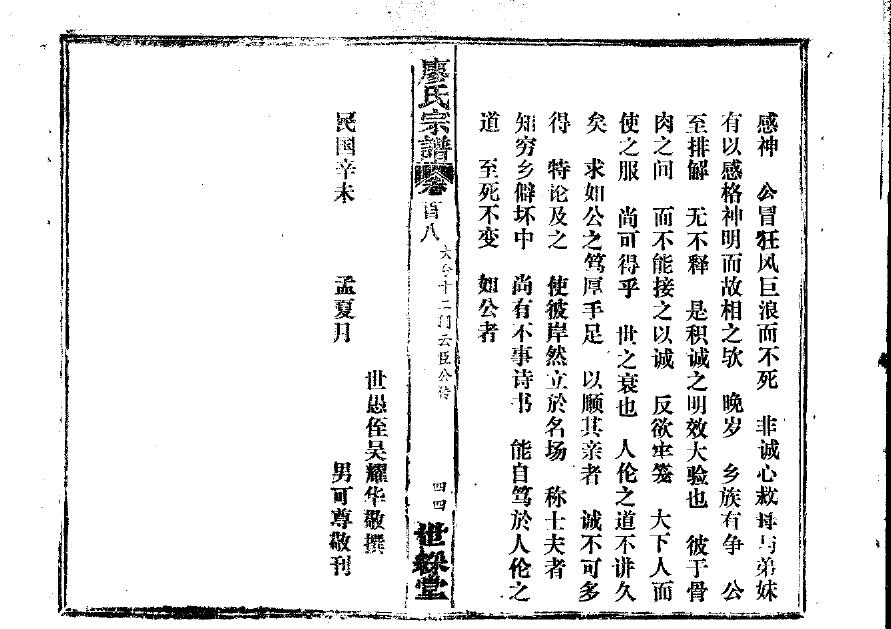 感神　公冒狂风巨浪而不死　非诚心救母与弟妹
有以感格神明而故相之欤　晚岁　乡族有争　公
至排解　无不释　是积诚之明效大验也　彼于骨
肉之间　而不能接之以诚　反欲牢笼　大下人而
使之服　尚可得乎　世之衰也　人伦之道不讲久
矣　求如公之笃厚手足　以顺其亲者　诚不可多
得　特论及之　使彼岸然立於名场　称士夫者
知穷乡僻坏中　尚有不事诗书　能自笃於人伦之
道　至死不变　如公者
廖氏宗譜 卷百八 十二门云臣公传 四四 世綵堂
世愚侄吴耀华敬撰
民国辛未　孟夏月　男可尊敬刊